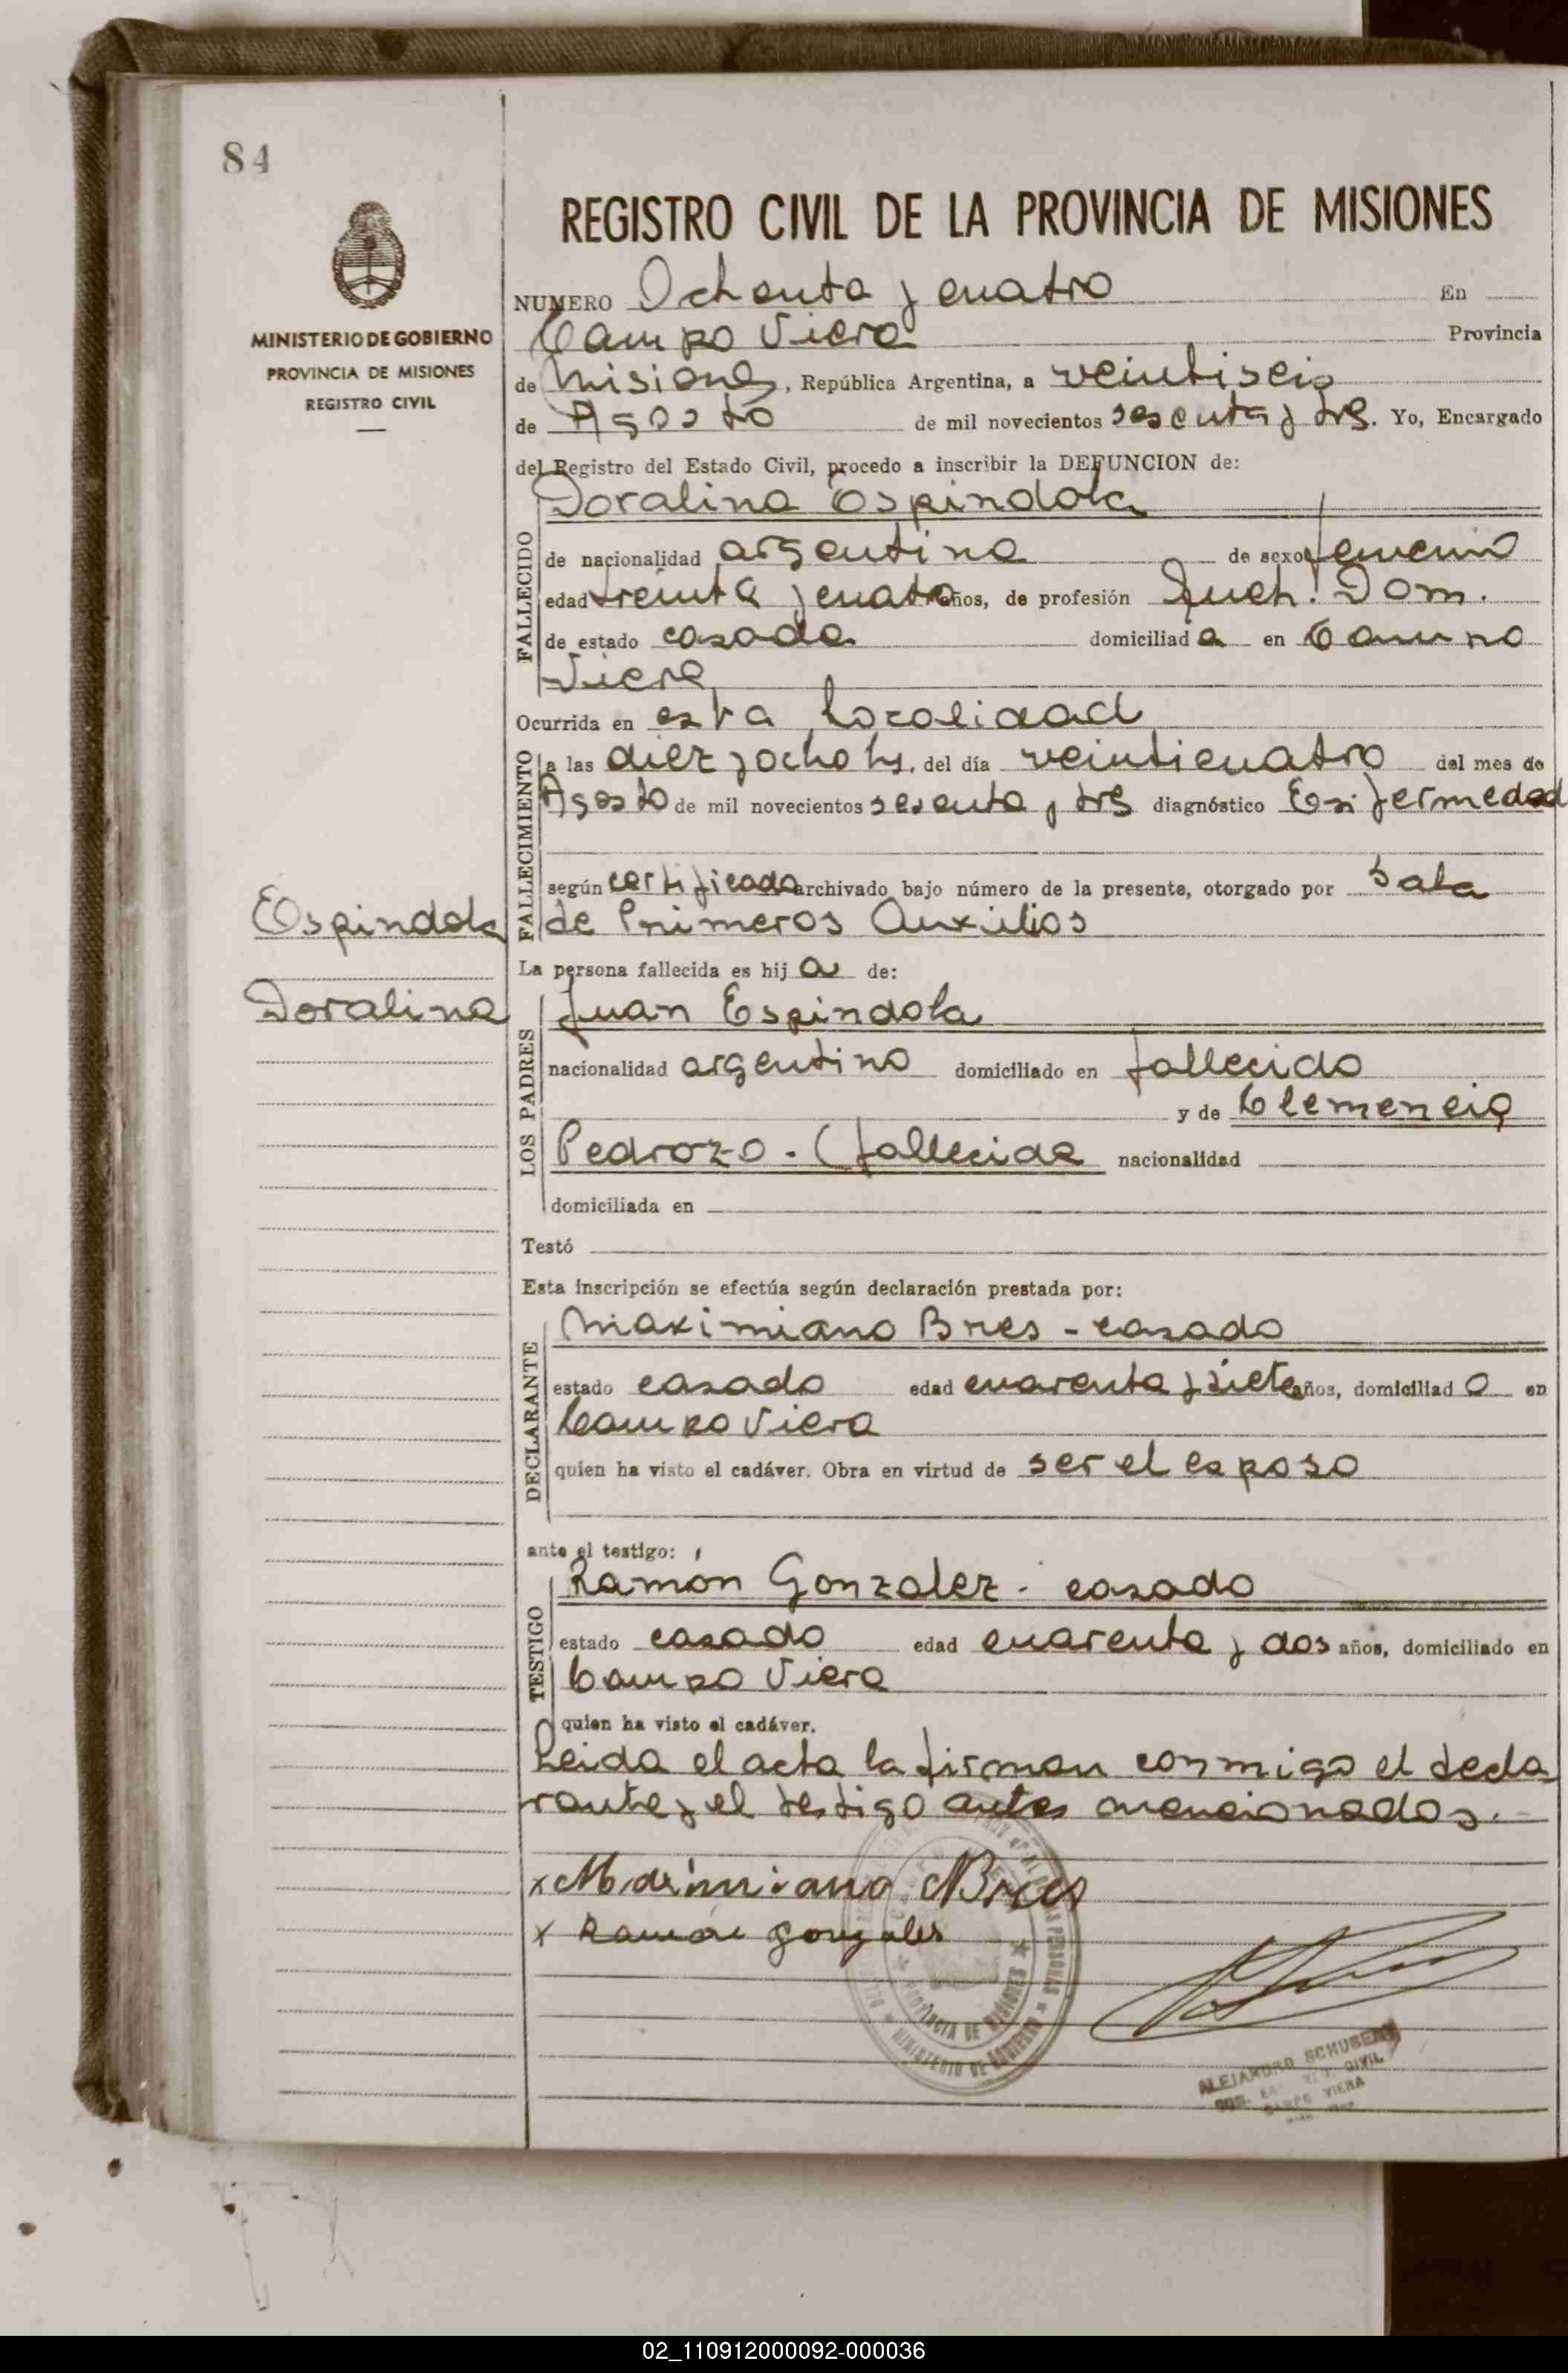 84
MINISTERIO DE GOBIERNO
PROVINCIA DE MISIONES
REGISTRO CIVIL
REGISTRO CIVIL DE LA PROVINCIA DE MISIONES
NUMERO Ochenta y cuatro En
Campo Viera Provincia
de Misiones, República Argentina, a veintiseis
de Agosto de mil novecientos sesenta y tres. Yo, Encargado
del Registro del Estado Civil, procedo a inscribir la DEFUNCION de:
FALLECIDO
Doralina Espindola
de nacionalidad argentina de sexo femenino
edad treinta y cuatro años, de profesión Dom.
de estado casada domiciliad a en Campo
Viera
Ocurrida en esta localidad
FALLECIMIENTO
a las diez y ocho hs. del día veinticuatro del mes de
Agosto de mil novecientos sesenta y tres diagnóstico Enfermedad
según certificado archivado bajo número de la presente, otorgado por Sala
de Primeros Auxilios
Espindola
Doralina
La persona fallecida es hij a de:
LOS PADRES
Juan Espindola
nacionalidad argentino domiciliado en fallecido
y de Clemencia
Pedrozo - (fallecida nacionalidad
domiciliada en
Testó
Esta inscripción se efectúa según declaración prestada por:
DECLARANTE
Maximiano Bres - casado
estado casado edad cuarenta y siete años, domiciliad o en
Campo Viera
quien ha visto el cadáver. Obra en virtud de ser el esposo
ante el testigo:
TESTIGO
Ramon Gonzalez - casado
estado casado edad cuarenta y dos años, domiciliado en
Campo Viera
quien ha visto el cadáver.
Leida el acta la firman conmigo el decla
rante y el testigo antes mencionados.-
x Maximiano Bres
x Ramón Gonzales
PROVINCIA DE MISIONES
MINISTERIO DE GOBIERNO
ALEJANDRO SCHUBERT
CAMPO VIERA
02_110912000092-000036